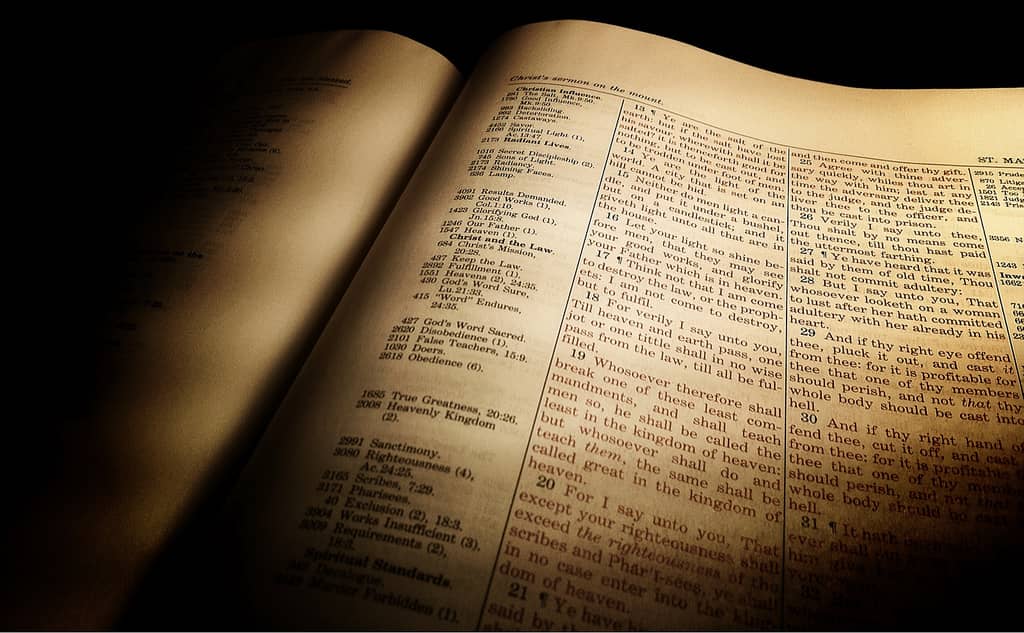 Christ's sermon on the mount.
ST. MA
Christian Influence.
291 The Salt, Mk.9:50.
1790 Good Influence,
Mk.9:50.
993 Backsliding.
962 Deterioration.
1274 Castaways.
Savor.
2166 Spiritual Light (1),
Ac.13:47.
2173 Radiant Lives.
1016 Secret Discipleship (2).
745 Sons of Light.
2173 Radiancy.
2174 Shining Faces.
636 Lamp.
4091 Results Demanded.
3902 Good Works (1),
Col.1:10.
1423 Glorifying God (1),
Jn.15:8.
1246 Our Father (1).
1547 Heaven (1).
Christ and the Law.
684 Christ's Mission,
20:28.
437 Keep the Law.
2892 Fulfillment (1).
1551 Heavens (2), 24:35.
430 God's Word Sure,
Lu.21:33.
415 "Word" Endures,
24:35.
427 God's Word Sacred.
2620 Disobedience (1).
2101 False Teachers, 15:9.
1030 Doers.
2618 Obedience (6).
1685 True Greatness, 20:26.
2008 Heavenly Kingdom
(2).
2991 Sanctimony.
3080 Righteousness (4),
Ac.24:25.
3165 Scribes, 7:29.
3171 Pharisees.
40 Exclusion (2), 18:3.
3904 Works Insufficient (3),
3009 Requirements (2),
18:3.
Spiritual Standards.
Decalogue,
Murder Forbidden (1).
13 ¶ Ye are the salt of the
earth: but if the salt have lost
his savour, wherewith shall it be
salted? it is thenceforth good for
nothing, but to be cast out, and
to be trodden under foot of men.
14 Ye are the light of the
world. A city that is set on an
hill cannot be hid.
15 Neither do men light a candle,
and put it under a bushel,
but on a candlestick; and it
giveth light unto all that are in
the house.
16 Let your light shine be-
fore men, that they may see
your good works, and glorify
your Father which is in heaven.
17 ¶ Think not that I am come
to destroy the law, or the proph-
ets: I am not come to destroy,
but to fulfil.
18 For verily I say unto you,
Till heaven and earth pass, one
jot or one tittle shall in no wise
pass from the law, till all be ful-
filled.
19 Whosoever therefore shall
break one of these least com-
mandments, and shall teach
men so, he shall be called the
least in the kingdom of heaven:
but whosoever shall do and
teach them, the same shall be
called great in the kingdom of
heaven.
20 For I say unto you, That
except your righteousness shall
exceed the righteousness of the
scribes and Phar'i-sees, ye shall
in no case enter into the king-
dom of heaven.
21 ¶ Ye have
said by
and then come and offer thy gift.
25 Agree with thine adver-
sary quickly, whiles thou art in
the way with him; lest at any
time the adversary deliver thee
to the judge, and the judge de-
liver thee to the officer, and
thou be cast into prison.
26 Verily I say unto thee,
Thou shalt by no means come
out thence, till thou hast paid
the uttermost farthing.
27 ¶ Ye have heard that it was
said by them of old time, Thou
shalt not commit adultery:
28 But I say unto you, That
whosoever looketh on a woman
to lust after her hath committed
adultery with her already in his
heart.
29 And if thy right eye offend
thee, pluck it out, and cast it
from thee: for it is profitable for
thee that one of thy members
should perish, and not that thy
whole body should be cast into
hell.
30 And if thy right hand of-
fend thee, cut it off, and cast
from thee: for it is profitable
thee that one of thy mem
should perish, and not that
whole body should go cast
hell.
31 ¶ It hath
ever shall
him